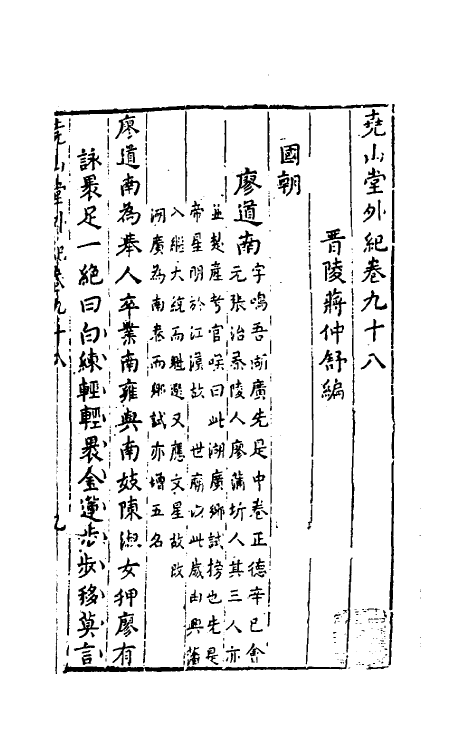 堯山堂外紀卷九十八
晋陵蔣仲舒編
國朝
廖道南字鳴吾湖廣先是中卷正德辛已會
元張治茶陵人廖蒲圻人其三人亦
並楚產考官嘆曰此湖廣鄉試榜也先是
帝星明於江漢故世廟以此歲由興藩
入繼大統而魁選又應文星故改
湖廣為南卷而鄉試亦增五名
廖道南為舉人卒業南雍與南妓陳淑女狎廖有
詠最足一絕曰白練輕輕最金蓮步步移莫言
堯山堂外紀卷九十八